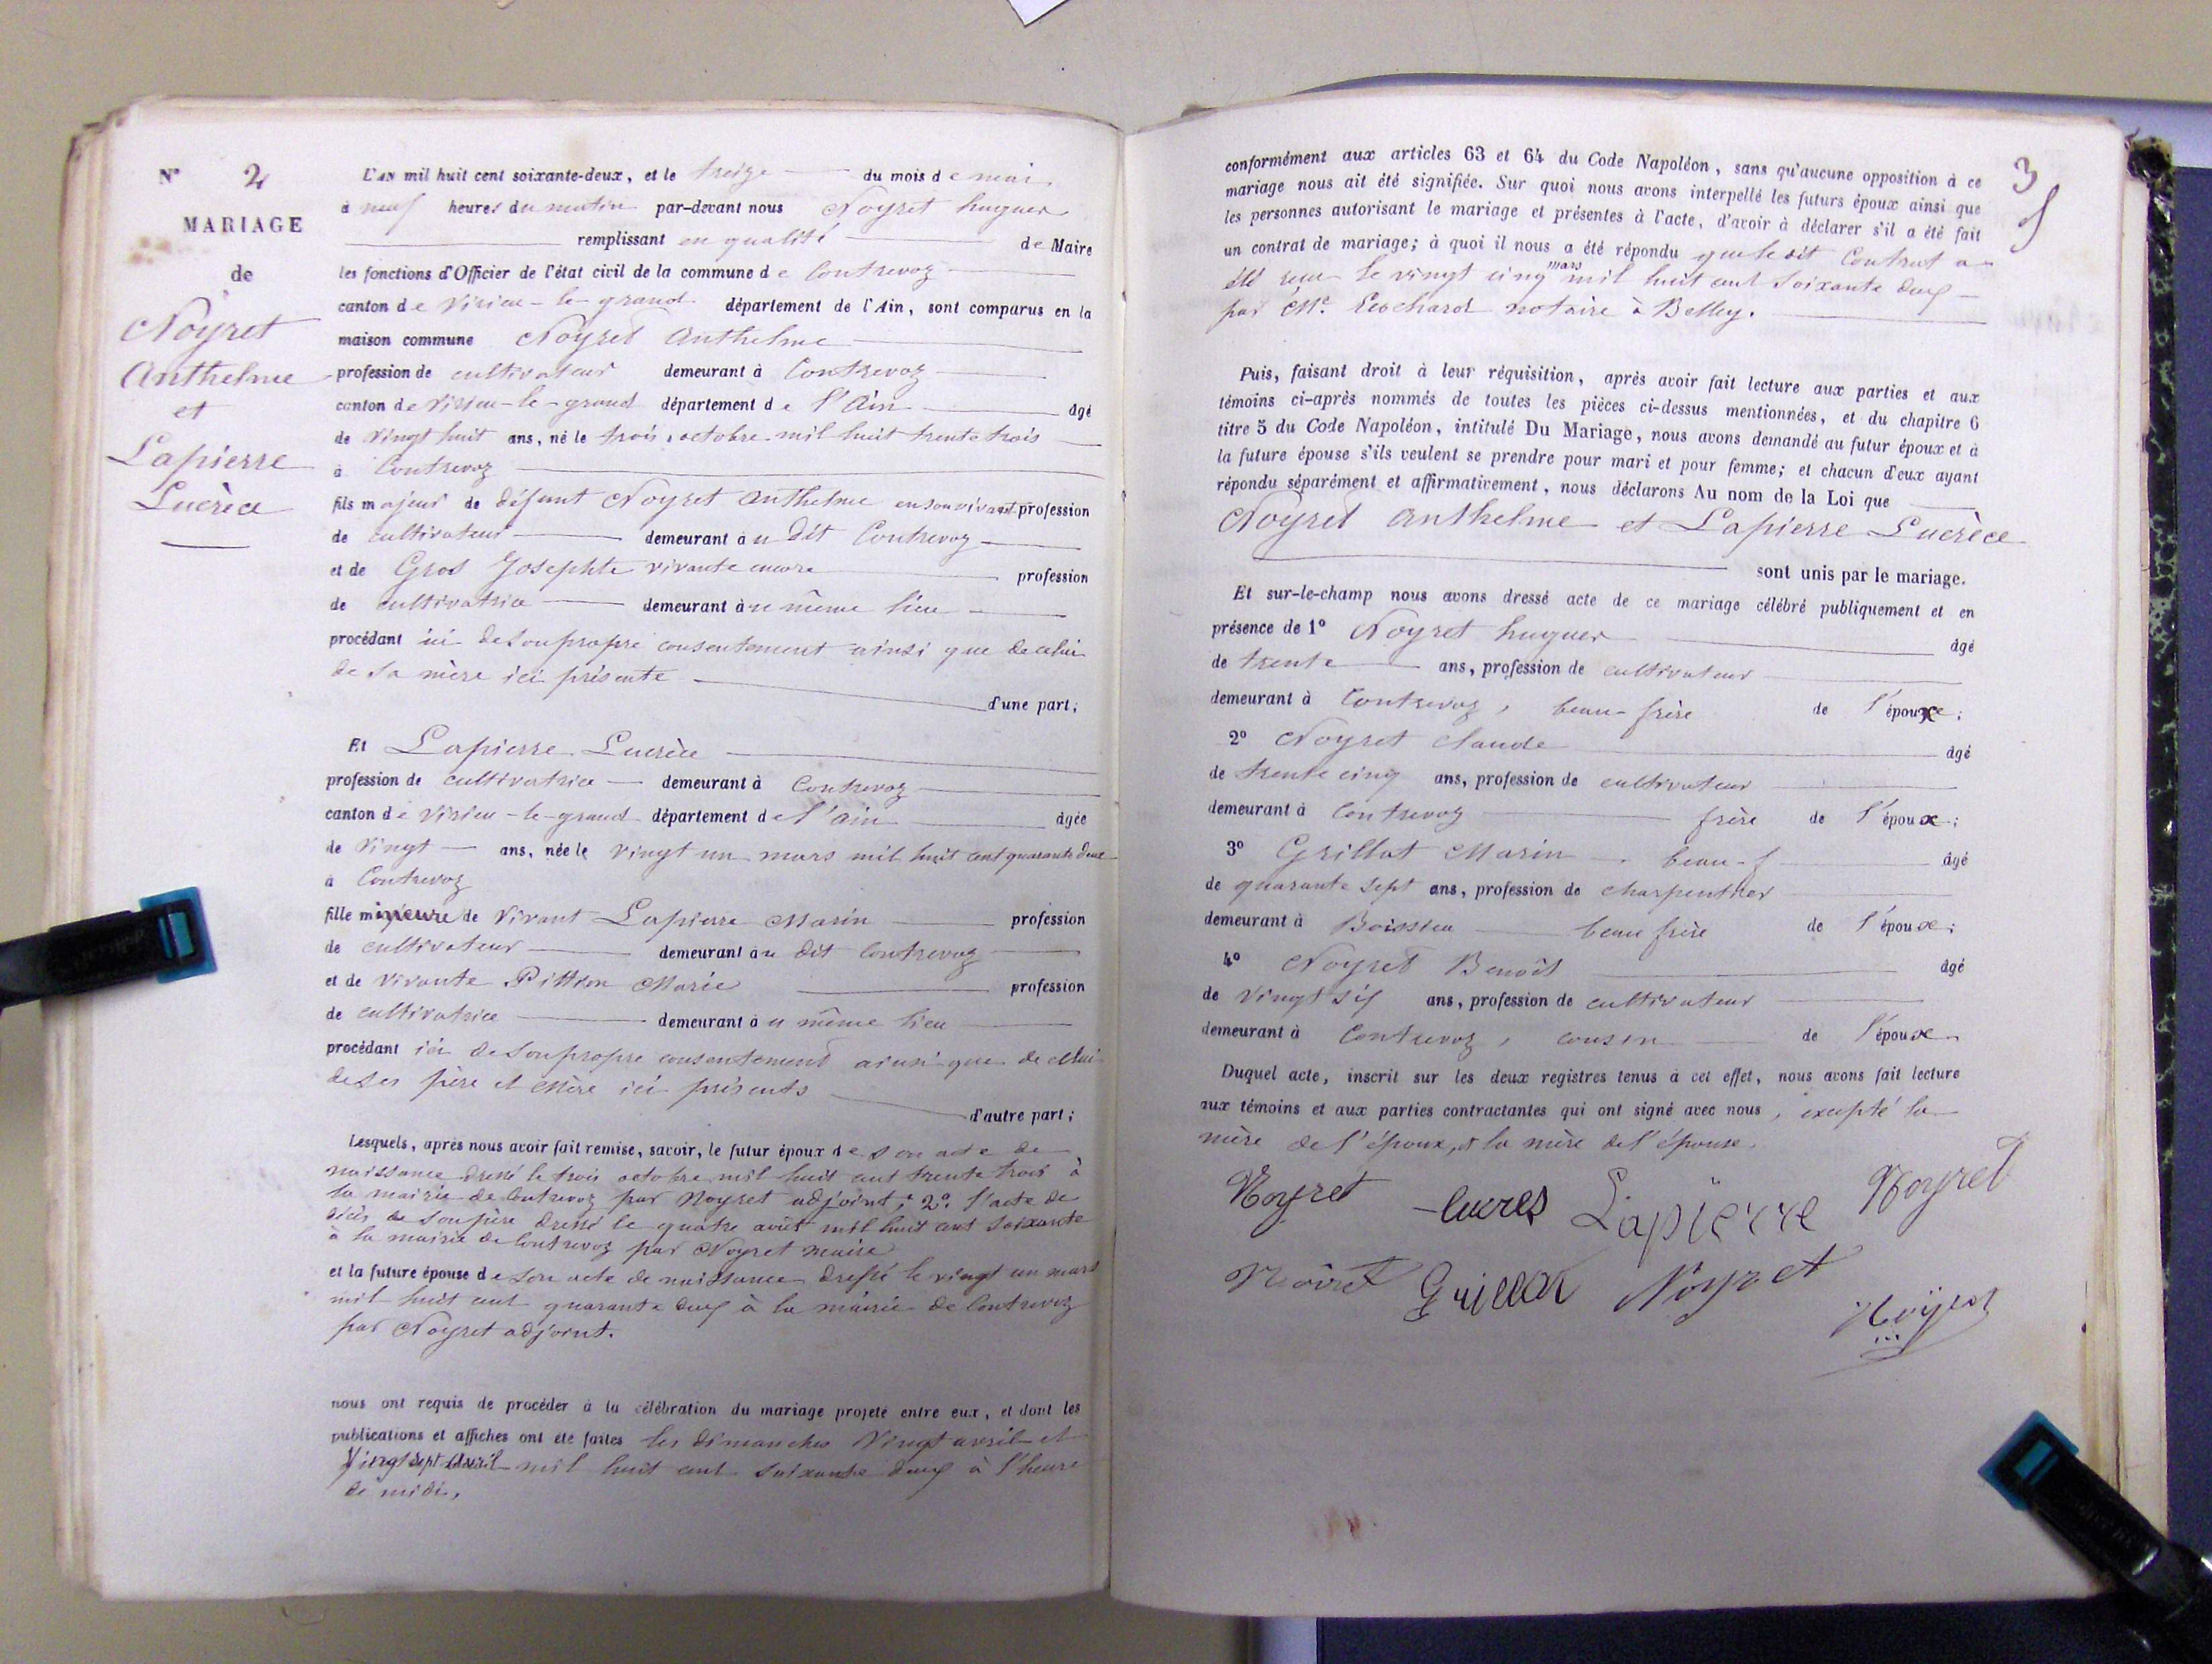 N° 2
MARIAGE
de
Noyret
Anthelme
et
Lapierre
Lucrèce
L'AN mil huit cent soixante-deux, et le treize du mois de mai
à neuf heures du matin par-devant nous Noyret hugues
remplissant en qualité de Maire
les fonctions d'Officier de l'état civil de la commune de Contrevoz
canton de Virieu-le-grand département de l'Ain, sont comparus en la
maison commune Noyret Anthelme
profession de cultivateur demeurant à Contrevoz
canton de Virieu-le-grand département de l'Ain âgé
de Vingt huit ans, né le trois octobre mil huit trente trois
à Contrevoz
fils majeur de défunt Noyret Anthelme en son vivant profession
de cultivateur demeurant au dit Contrevoz
et de Gros Josephte vivante encore profession
de cultivatrice demeurant au même lieu
procédant ici de son propre consentement ainsi que de celui
de sa mère ici présente
d'une part;
Et Lapierre Lucrèce
profession de cultivatrice demeurant à Contrevoz
canton de Virieu-le-grand département de l'ain âgée
de Vingt ans, née le vingt un mars mil huit cent quarante deux
à Contrevoz
fille mineure de Vivant Lapierre Marin profession
de cultivateur demeurant au dit Contrevoz
et de vivante Pittion Marie profession
de cultivatrice demeurant au même lieu
procédant ici de son propre consentement ainsi que de celui
de ses père et mère ici présents
d'autre part;
Lesquels, après nous avoir fait remise, savoir, le futur époux de son acte de
naissance dressé le trois octobre mil huit cent trente trois à
la mairie de Contrevoz par Noyret adjoint; 2° l'acte de
décès de son père dressé le quatre août mil huit cent soixante
à la mairie de Contrevoz par Noyret maire
et la future épouse de son acte de naissance dressé le vingt un mars
mil huit cent quarante deux à la mairie de Contrevoz
par Noyret adjoint.
nous ont requis de procéder à la célébration du mariage projeté entre eux, et dont les
publications et affiches ont été faites les dimanches Vingt avril et
Vingt sept Avril mil huit cent soixante deux à l'heure
de midi,
3
conformément aux articles 63 et 64 du Code Napoléon, sans qu'aucune opposition à ce
mariage nous ait été signifiée. Sur quoi nous avons interpellé les futurs époux ainsi que
les personnes autorisant le mariage et présentes à l'acte, d'avoir à déclarer s'il a été fait
un contrat de mariage; à quoi il nous a été répondu que le dit Contrat a
été reçu le vingt cinq mars mil huit cent soixante deux
par Me. notaire à Belley.
Puis, faisant droit à leur réquisition, après avoir fait lecture aux parties et aux
témoins ci-après nommés de toutes les pièces ci-dessus mentionnées, et du chapitre 6
titre 5 du Code Napoléon, intitulé Du Mariage, nous avons demandé au futur époux et à
la future épouse s'ils veulent se prendre pour mari et pour femme; et chacun d'eux ayant
répondu séparément et affirmativement, nous déclarons Au nom de la Loi que
Noyret Anthelme et Lapierre Lucrèce
sont unis par le mariage.
Et sur-le-champ nous avons dressé acte de ce mariage célébré publiquement et en
présence de 1° Noyret hugues âgé
de trente ans, profession de cultivateur
demeurant à Contrevoz, beau-frère de l'épouse;
2° Noyret Claude âgé
de trente cinq ans, profession de cultivateur
demeurant à Contrevoz frère de l'époux;
3° Grillot Marin beau-f âgé
de quarante sept ans, profession de charpentier
demeurant à Boissieu beau frère de l'époux;
4° Noyret Benoît âgé
de Vingt six ans, profession de cultivateur
demeurant à Contrevoz, cousin de l'époux
Duquel acte, inscrit sur les deux registres tenus à cet effet, nous avons fait lecture
aux témoins et aux parties contractantes qui ont signé avec nous, excepté la
mère de l'époux, et la mère de l'épouse.
Noyret lucres Lapierre Noyret
Noiret Grillot Noyret